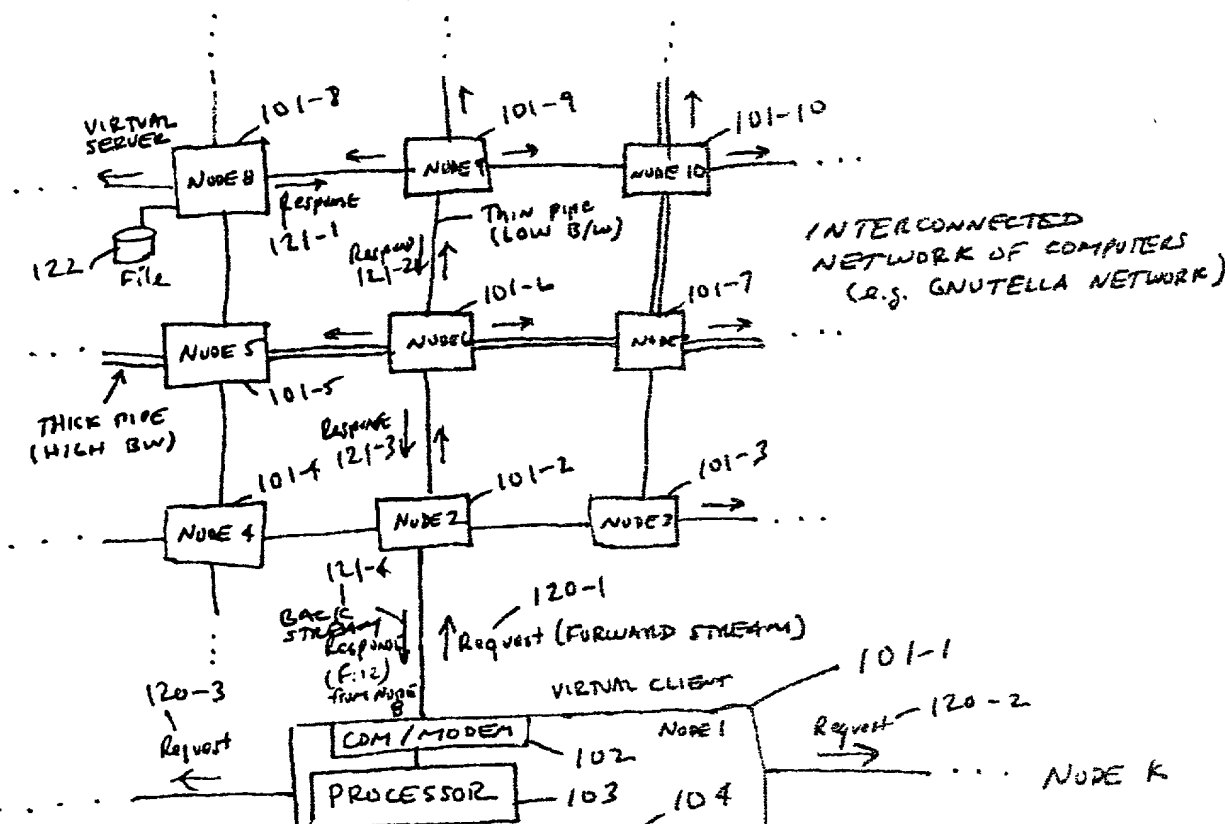 VIRTUAL
SERVER
101-8
101-9
101-10
NODE 8
NODE 9
NODE 10
Response
121-1
THIN PIPE
(LOW B/W)
122
File
Respons
121-2
INTERCONNECTED
NETWORK OF COMPUTERS
(e.g. GNUTELLA NETWORK)
101-6
101-7
NODE 5
NODE 6
NODE 7
101-5
THICK PIPE
(HIGH BW)
Response
121-3
101-4
101-2
101-3
NODE 4
NODE 2
NODE 3
121-4
BACK
STREAM
RESPONSE
(File)
from NODE
8
120-1
Request (FORWARD STREAM)
120-3
Request
VIRTUAL CLIENT
101-1
COM / MODEM
NODE 1
Request
120-2
102
PROCESSOR
103
104
NODE K